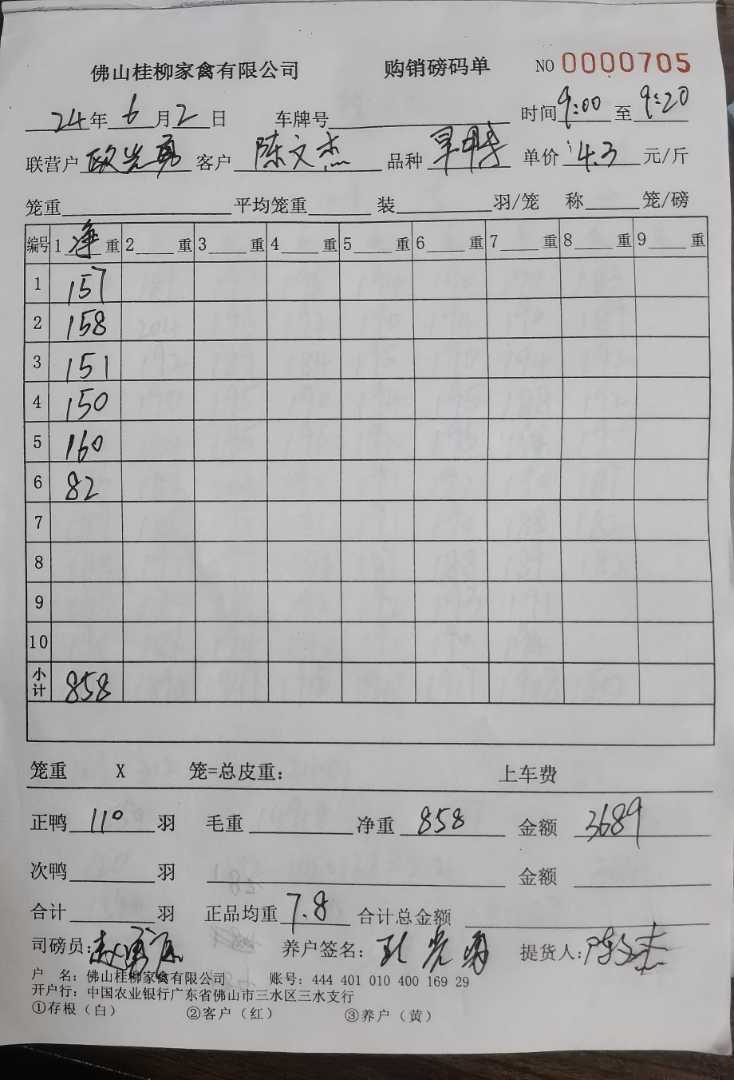 佛山桂柳家禽有限公司 购销磅码单 NO 0000705
24年6月2日 车牌号 时间9:00至9:20
联营户 欧光勇 客户 陈文杰 品种 单价 4.3 元/斤
笼重 平均笼重 装 羽/笼 称 笼/磅
编号 1净重 2 重 3 重 4 重 5 重 6 重 7 重 8 重 9 重
1 157
2 158
3 151
4 150
5 160
6 82
7
8
9
10
小计 858
笼重 X 笼=总皮重: 上车费
正鸭 110 羽 毛重 净重 858 金额 3689
次鸭 羽 金额
合计 羽 正品均重 7.8 合计总金额
司磅员: 养户签名: 欧光勇 提货人: 陈文杰
户 名: 佛山桂柳家禽有限公司 账号: 444 401 010 400 169 29
开户行: 中国农业银行广东省佛山市三水区三水支行
①存根(白) ②客户(红) ③养户(黄)